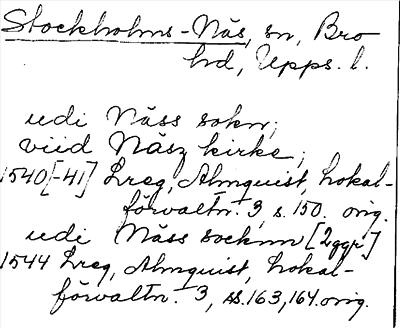 Stockholms-Näs, sn, Bro
hd, Upps. l.
udi Näss sokn;
viid Näsz kirke;
1540[-41] Lreg, Almquist, Lokal-
förvaltn. 3, s. 150. orig.
udi Näss socknn [2ggr]
1544 Lreg, Almquist, Lokal-
förvaltn. 3, ss. 163, 164. orig.